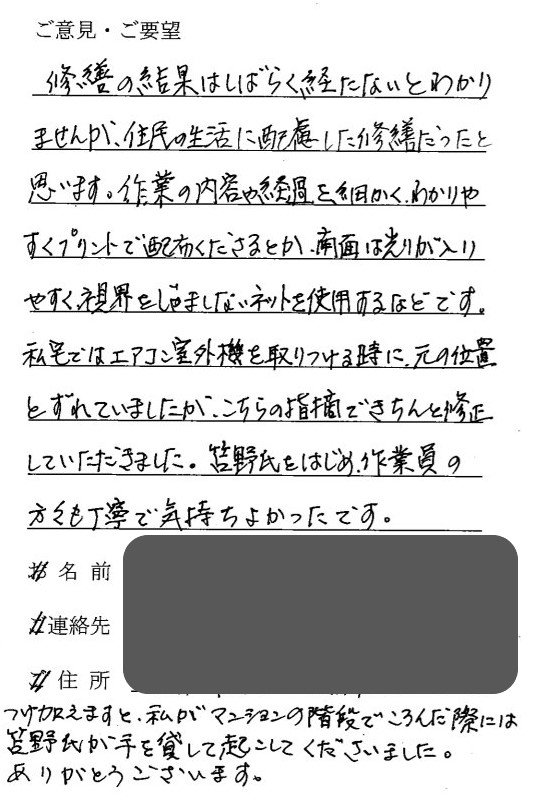 ご意見・ご要望
修繕の結果はしばらく経たないとわかり
ませんが、住民の生活に配慮した修繕だったと
思います。作業の内容や経過を細かく、わかりや
すくプリントで配布くださるとか、南面は光りが入り
やすく、視界をじゃましないネットを使用するなどです。
私宅ではエアコン室外機を取りつける時に、元の位置
とずれていましたが、こちらの指摘できちんと修正
していただきました。筥野氏をはじめ、作業員の
方々も丁寧で気持ちよかったです。
名前
連絡先
住所
つけ加えますと、私がマンションの階段でころんだ際には
筥野氏が手を貸して起こしてくださいました。
ありがとうございます。